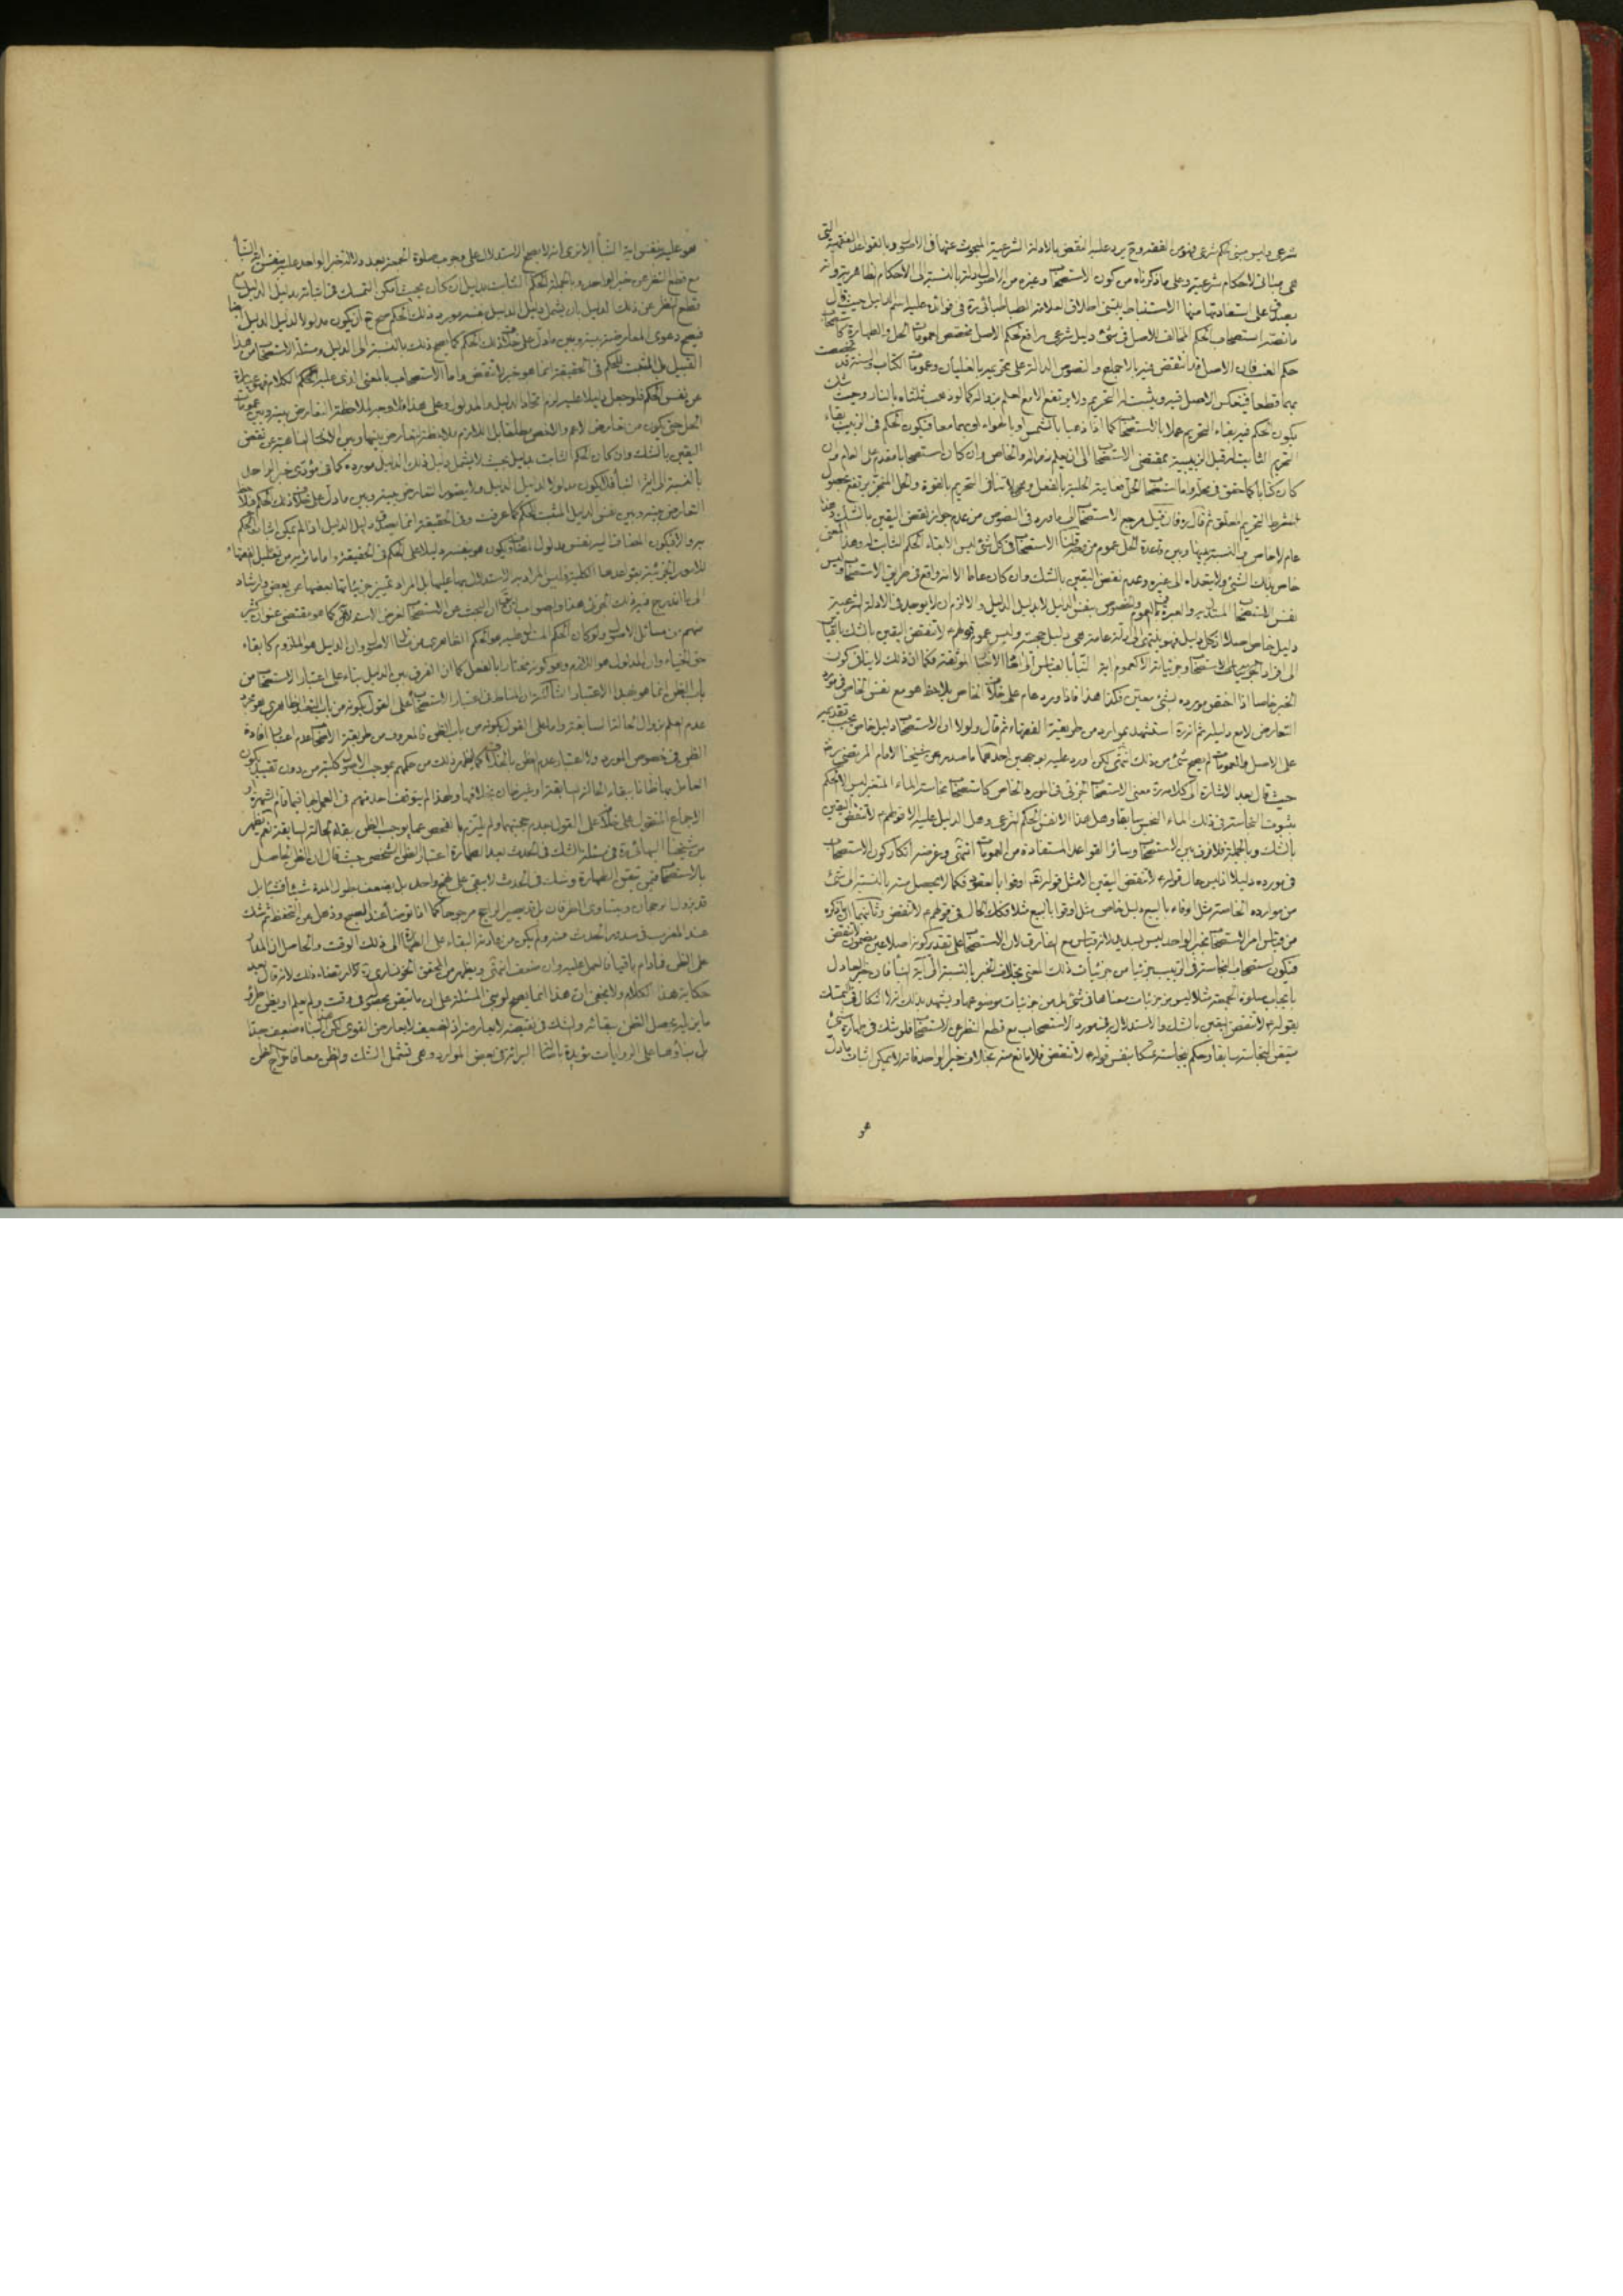 شرعى وليس مبنى لحكم شرعى فهو من الفقه وح يرد عليه النقض بالادلة الشرعية المبحوث عنها فى الاصول وبالقواعد الفقهية التى
هى مبانى لاحكام شرعية وعلى ما ذكرناه من كون الاستصحاب وغيره من الاصول ادلة بالنسبة الى الاحكام الظاهرية وانه
يصدق على استفادتها منها الاستنباط يبتنى اطلاق العلامة الطباطبائى ره فى فوائده عليه اسم الدليل حيث قال
ما نصه استصحاب الحكم المخالف للاصل فى شىء دليل شرعى رافع لحكم الاصل مخصص لعمومات الحل والطهارة كاستصحاب
حكم العنب فان الاصل قد انتقض فيه بالاجماع والنصوص الدالة على تحريمه بالغليان وعمومات الكتاب والسنة قد تخصصت
بهما قطعا فينعكس الاصل فيه ويثبت له التحريم ولا يرتفع الا مع العلم بزواله كما لو ذهب ثلثاه بالنار وحيث شك
يكون الحكم فيه بقاء التحريم عملا بالاستصحاب كما اذا ذهبا بالشمس او بالهواء او بهما معا فيكون الحكم فى الزبيب بقاء
التحريم الثابت له قبل الزبيبية بمقتضى الاستصحاب الى ان يعلم زواله والخاص وان كان استصحابا مقدم على العام وان
كان كتابا كما حقق فى محله واما استصحاب الحل فغايته الحلية بالفعل وهى لا تنافى التحريم بالقوة والحل المنجز يرتفع بحصول
شرط التحريم المعلق ثم قال ره فان قيل مرجع الاستصحاب الى ما ورد فى النصوص من عدم جواز نقض اليقين بالشك وهذا
عام لا خاص قلنا الاستصحاب فى كل شىء ليس الا بقاء الحكم الثابت له وهذا المعنى
خاص بذلك الشىء ولا يتعداه الى غيره وعدم نقض اليقين بالشك وان كان عاما الا انه واقع فى طريق الاستصحاب وليس
نفس الاستصحاب المستدل به والعبرة فى العموم والخصوص بنفس الدليل لا بدليل الدليل والا لزم ان لا يوجد فى الادلة الشرعية
دليل خاص اصلا اذ كل دليل فهو ينتهى الى ادلة عامة هى دليل حجيته وليس عموم قولهم لا تنقض اليقين بالشك بالقياس
الى افراد الاستصحاب وجزئياته الا كعموم اية النبأ بالقياس الى احاد الاخبار المؤثقة فكما ان ذلك لا ينافى كون
الخبر خاصا اذا اختص مورده بشىء معين فكذا هذا فاذا ورد عام على خلاف الخاص يلاحظ هو مع نفس الخاص فى مورد
التعارض لا مع دليله ثم انه ره استشهد بموارد من طريقة الفقهاء ثم قال ولولا ان الاستصحاب دليل خاص يجب تقديمه
على الاصل والعمومات لم يصح شىء من ذلك انتهى لكن اورد عليه بوجهين احدهما ما صدر عن شيخنا الامام المرتضى ره
حيث قال بعد الاشارة الى كلامه ره معنى الاستصحاب الجزئى فى المورد الخاص كاستصحاب نجاسة الماء المتغير ليس الا الحكم
بثبوت النجاسة فى ذلك الماء النجس سابقا وهل هذا الا نفس الحكم الشرعى وهل الدليل عليه الا قولهم لا تنقض اليقين
بالشك وبالجملة فلا فرق بين الاستصحاب وسائر القواعد المستفادة من العمومات انتهى وغرضه انكار كون الاستصحاب
فى مورده دليلا اذ ليس حال قوله لا تنقض اليقين الا مثل قوله تعالى اوفوا بالعقود فكما لا يحصل منه بالنسبة الى شىء
من موارده الخاصة مثل اوفاء بالبيع دليل خاص مثل اوفوا بالبيع مثلا فكك الحال فى قولهم لا تنقض وثانيهما ان ما ذكره
من قياس امر الاستصحاب بخبر الواحد ليس بسديد لانه قياس مع الفارق لان الاستصحاب على تقدير كونه اصلا عين مضمون لا تنقض
فيكون استصحاب النجاسة فى الزبيب جزئيا من جزئيات ذلك المعنى بخلاف الخبر بالنسبة الى آية النبأ فان خبر العادل
بايجاب صلوة الجمعة مثلا ليس من جزئيات معناها فى شىء بل من جزئيات موضوعها ويشهد بذلك انه لا اشكال فى التمسك
بقوله لا تنقض اليقين بالشك والاستدلال به فى مورد الاستصحاب مع قطع النظر عن الاستصحاب فلو شك فى طهارة شىء
متيقن النجاسة سابقا وحكم بنجاسته تمسكا بنفس قوله لا تنقض فلا مانع منه بخلاف خبر الواحد فانه لا يمكن اثبات ما دل
هو
هو عليه بنفس اية النبأ الا ترى انه لا يصح الاستدلال على وجوب صلوة الجمعة بعد دلالة خبر الواحد عليه بنفس اية النبأ
مع قطع النظر عن خبر الواحد وبالجملة الحكم الثابت بدليل ان كان بحيث امكن التمسك فى اثباته بدليل الدليل مع
قطع النظر عن ذلك الدليل بان يشمل دليل الدليل بنفسه مورد ذلك الحكم صح ح ان يكون مدلولا لدليل الدليل
فيصح دعوى المعارضة بينه وبين ما دل على خلاف ذلك الحكم كما يصح ذلك بالنسبة الى الدليل ومسئلة الاستصحاب من هذا
القبيل بل المثبت للحكم فى الحقيقة انما هو خبر لا تنقض واما الاستصحاب بالمعنى الذى عليه الكلام فهو عبارة
عن نفس الحكم فلو جعل دليلا عليه لزم اتحاد الدليل والمدلول وعلى هذا فلا وجه لملاحظة التعارض بينه وبين عمومات
الحل حتى يكون من تعارض الاعم والاخص مطلقا بل اللازم ملاحظة التعارض بينها وبين الاخبار الناهية عن نقض
اليقين بالشك وان كان الحكم الثابت بدليل بحيث لا يشمل دليل ذلك الدليل مورده كما فى مؤدى خبر الواحد
بالنسبة الى اية النبأ فلا يكون مدلولا لدليل الدليل ولا يتصور التعارض بينه وبين ما دل على خلاف ذلك الحكم
التعارض بينه وبين نفس الدليل المثبت للحكم كما عرفت وفى الحقيقة انما يصدق دليل الدليل اذا لم يمكن اثبات الحكم
به والا فيكون المضاف اليه بنفس مدلول المضاف ويكون هو بنفسه دليلا على الحكم فى الحقيقة واما ما نريه من تعليل الفقهاء
للامور الجزئية بقواعدها الكلية فليس المراد به الاستدلال بها عليها بل المراد تمييز جزئياتها بعضها عن بعض وارشاد
فى كونه من مسائل الاصول ولو كان الحكم المدلول عليه هو الحكم الظاهرى وان الدليل هو الملزوم كابقاء
باب الظن انما هو بهذا الاعتبار الثالث ان المناط فى اعتبار الاستصحاب على القول بكونه من باب التعبد الظاهرى هو مجرد
عدم العلم بزوال الحالة السابقة واما على القول بكونه من باب الظن فالمعروف من طريقة الاصحاب عدم اعتبار افادة
الظن فى خصوص المورد ولا اعتبار عدم الظن بالخلاف كما يظهر ذلك من حكمهم بموجب الاصول كلية من دون تقييد بكون
العامل بها ظانا ببقاء الحالة السابقة او غير ظان بخلافها ولهذا لم يتوقف احد منهم فى العمل بها فيما قام الشهرة او
الاجماع المنقول على خلافه على القول بعدم حجيتهما ولم يلتزم بالفحص عما يوجب الظن ببقاء الحالة السابقة نعم يظهر
من شيخنا البهائى ره فى مسئلة الشك فى الحدث بعد الطهارة اعتبار الظن الشخصى حيث قال ان الظن الحاصل
بالاستصحاب فيمن تيقن الطهارة وشك فى الحدث لا يبقى على نهج واحد بل يضعف بطول المدة شيئا فشيئا بل
قد يزول الرجحان ويتساوى الطرفان بل قد يصير الراجح مرجوحا كما اذا توضأ عند الصبح وذهل عن التحفظ ثم شك
عند المغرب فى صدور الحدث منه ولم يكن من عادته البقاء على الطهارة الى ذلك الوقت والحاصل ان المدار
على الظن فما دام باقيا فالعمل عليه وان ضعف انتهى ويظهر من المحقق الخونسارى ره ارتضاء ذلك لانه قال بعد
حكاية هذا الكلام ولا يخفى ان هذا انما يصح لو بنى المسئلة على ان ما تيقن بحصوله فى وقت ولم يعلم او يظن طرو
ما يزيله يحصل الظن ببقائه والشك فى نقيضه لا يعارضه اذ الضعيف لا يعارض القوى لكن هذا البناء ضعيف جدا
بل بناؤها على الروايات مؤيدة باصالة البرائة فى بعض الموارد وهى تشمل الشك والظن معا فاخراج الظن